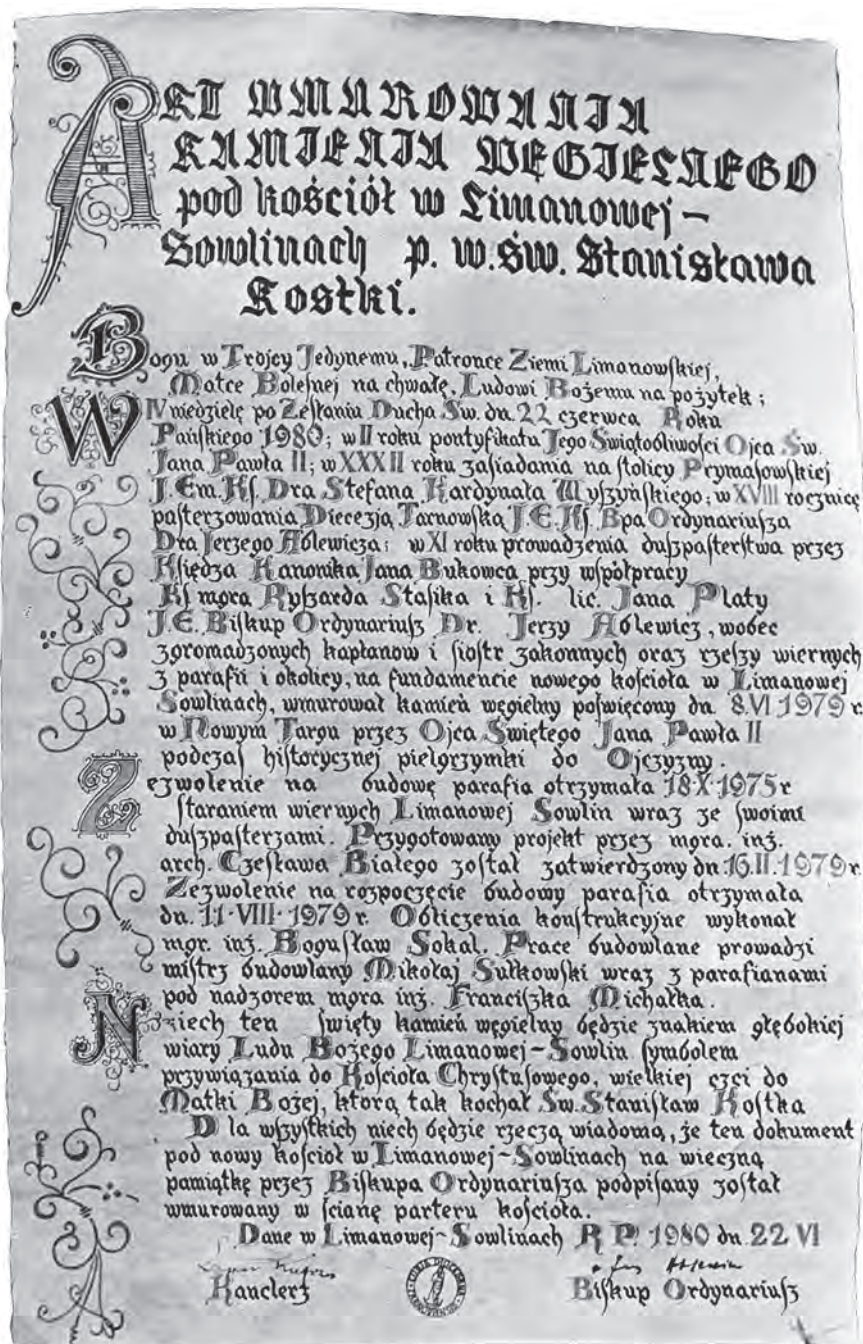 AKT WMUROWANIA
KAMIENIA WĘGIELNEGO
pod kościół w Limanowej –
Sowlinach p. w. św. Stanisława
Kostki.
Bogu w Trójcy Jedynemu, Patronce Ziemi Limanowskiej,
Matce Bolesnej na chwałę, Ludowi Bożemu na pożytek;
W IV niedzielę po Zesłaniu Ducha Św. dn. 22 czerwca Roku
Pańskiego 1980; w II roku pontyfikatu Jego Świątobliwości Ojca Św.
Jana Pawła II; w XXXII roku zasiadania na stolicy Prymasowskiej
J. Em. Ks. Dra Stefana Kardynała Wyszyńskiego; w XVIII rocznicę
pasterzowania Diecezją Tarnowską J. E. Ks. Bpa Ordynariusza
Dra Jerzego Ablewicza; w XI roku prowadzenia duszpasterstwa przez
Księdza Kanonika Jana Bukowca przy współpracy
Ks mgra Ryszarda Stasika i Ks. lic. Jana Platy
J. E. Biskup Ordynariusz Dr. Jerzy Ablewicz, wobec
zgromadzonych kapłanów i sióstr zakonnych oraz rzeszy wiernych
z parafii i okolicy, na fundamencie nowego kościoła w Limanowej
Sowlinach, wmurował kamień węgielny poświęcony dn. 8.VI.1979 r.
w Nowym Targu przez Ojca Świętego Jana Pawła II
podczas historycznej pielgrzymki do Ojczyzny.
Zezwolenie na budowę parafia otrzymała 18·X·1975 r
staraniem wiernych Limanowej Sowlin wraz ze swoimi
duszpasterzami. Przygotowany projekt przez mgra. inż.
arch. Czesława Białego został zatwierdzony dn. 16.II.1979 r.
Zezwolenie na rozpoczęcie budowy parafia otrzymała
dn. 11·VIII·1979 r. Obliczenia konstrukcyjne wykonał
mgr. inż. Bogusław Sokal. Prace budowlane prowadzi
mistrz budowlany Mikołaj Sułkowski wraz z parafianami
pod nadzorem mgra inż. Franciszka Michałka.
Niech ten święty kamień węgielny będzie znakiem głębokiej
wiary Ludu Bożego Limanowej – Sowlin symbolem
przywiązania do Kościoła Chrystusowego, wielkiej czci do
Matki Bożej, którą tak kochał Św. Stanisław Kostka
Dla wszystkich niech będzie rzeczą wiadomą, że ten dokument
pod nowy kościół w Limanowej – Sowlinach na wieczną
pamiątkę przez Biskupa Ordynariusza podpisany został
wmurowany w ścianę parteru kościoła.
Dane w Limanowej – Sowlinach R. P. 1980 dn. 22 VI
Kanclerz
Biskup Ordynariusz